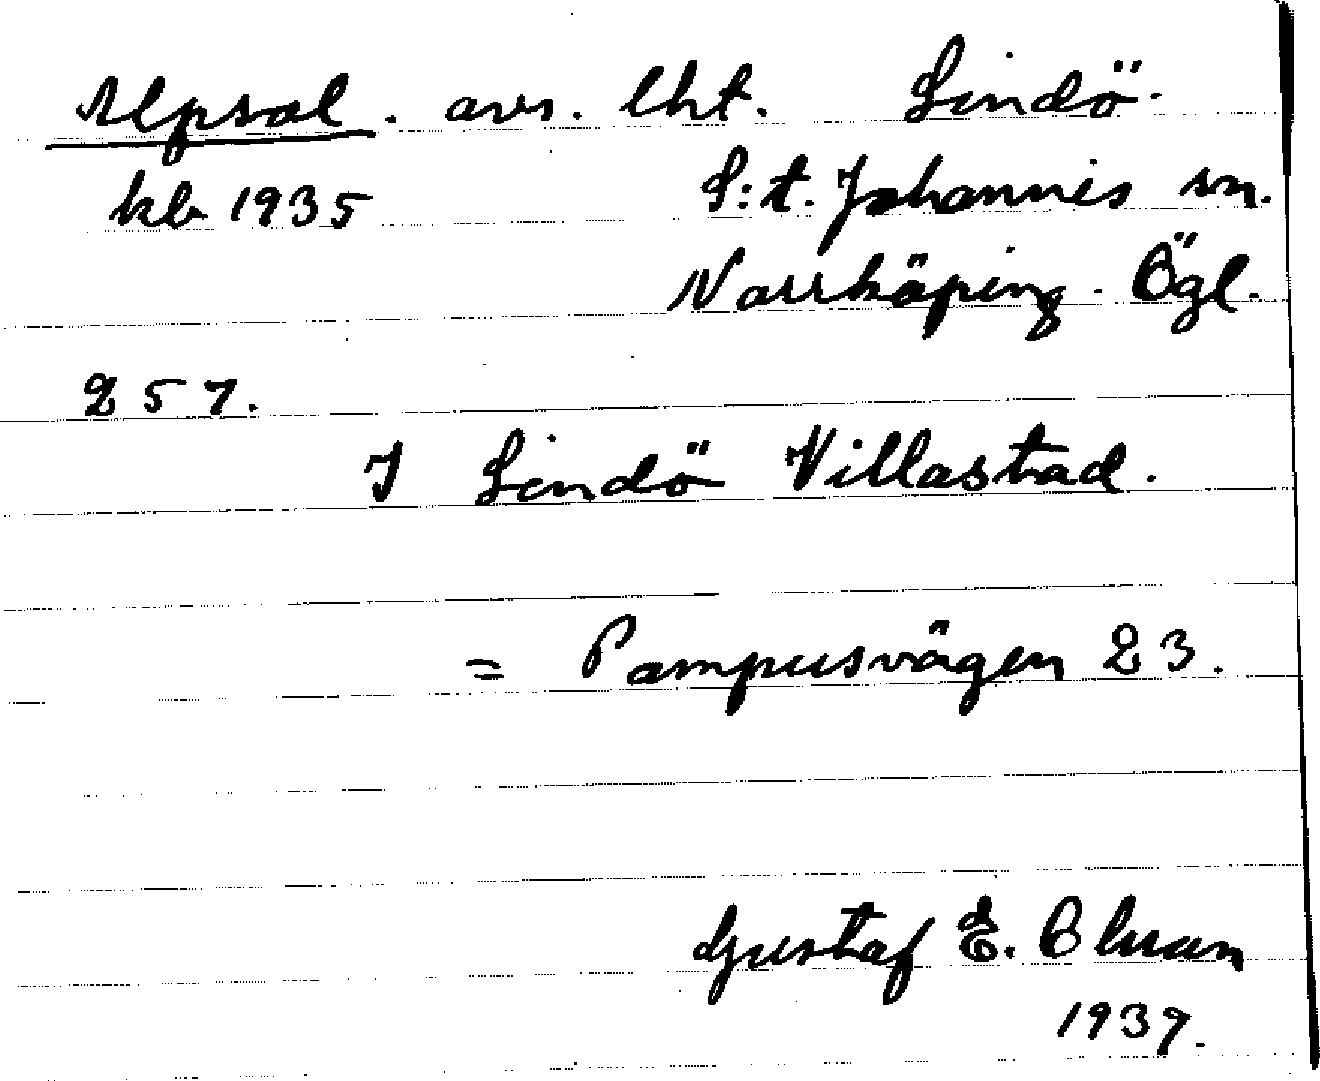 Alpsol. avs. lht. Lindö.
kb 1935 S:t. Johannis sn.
Norrköping. Ögl.
257.
I Lindö Villastad.
= Pampusvägen 23.
Gustaf E.
1937.